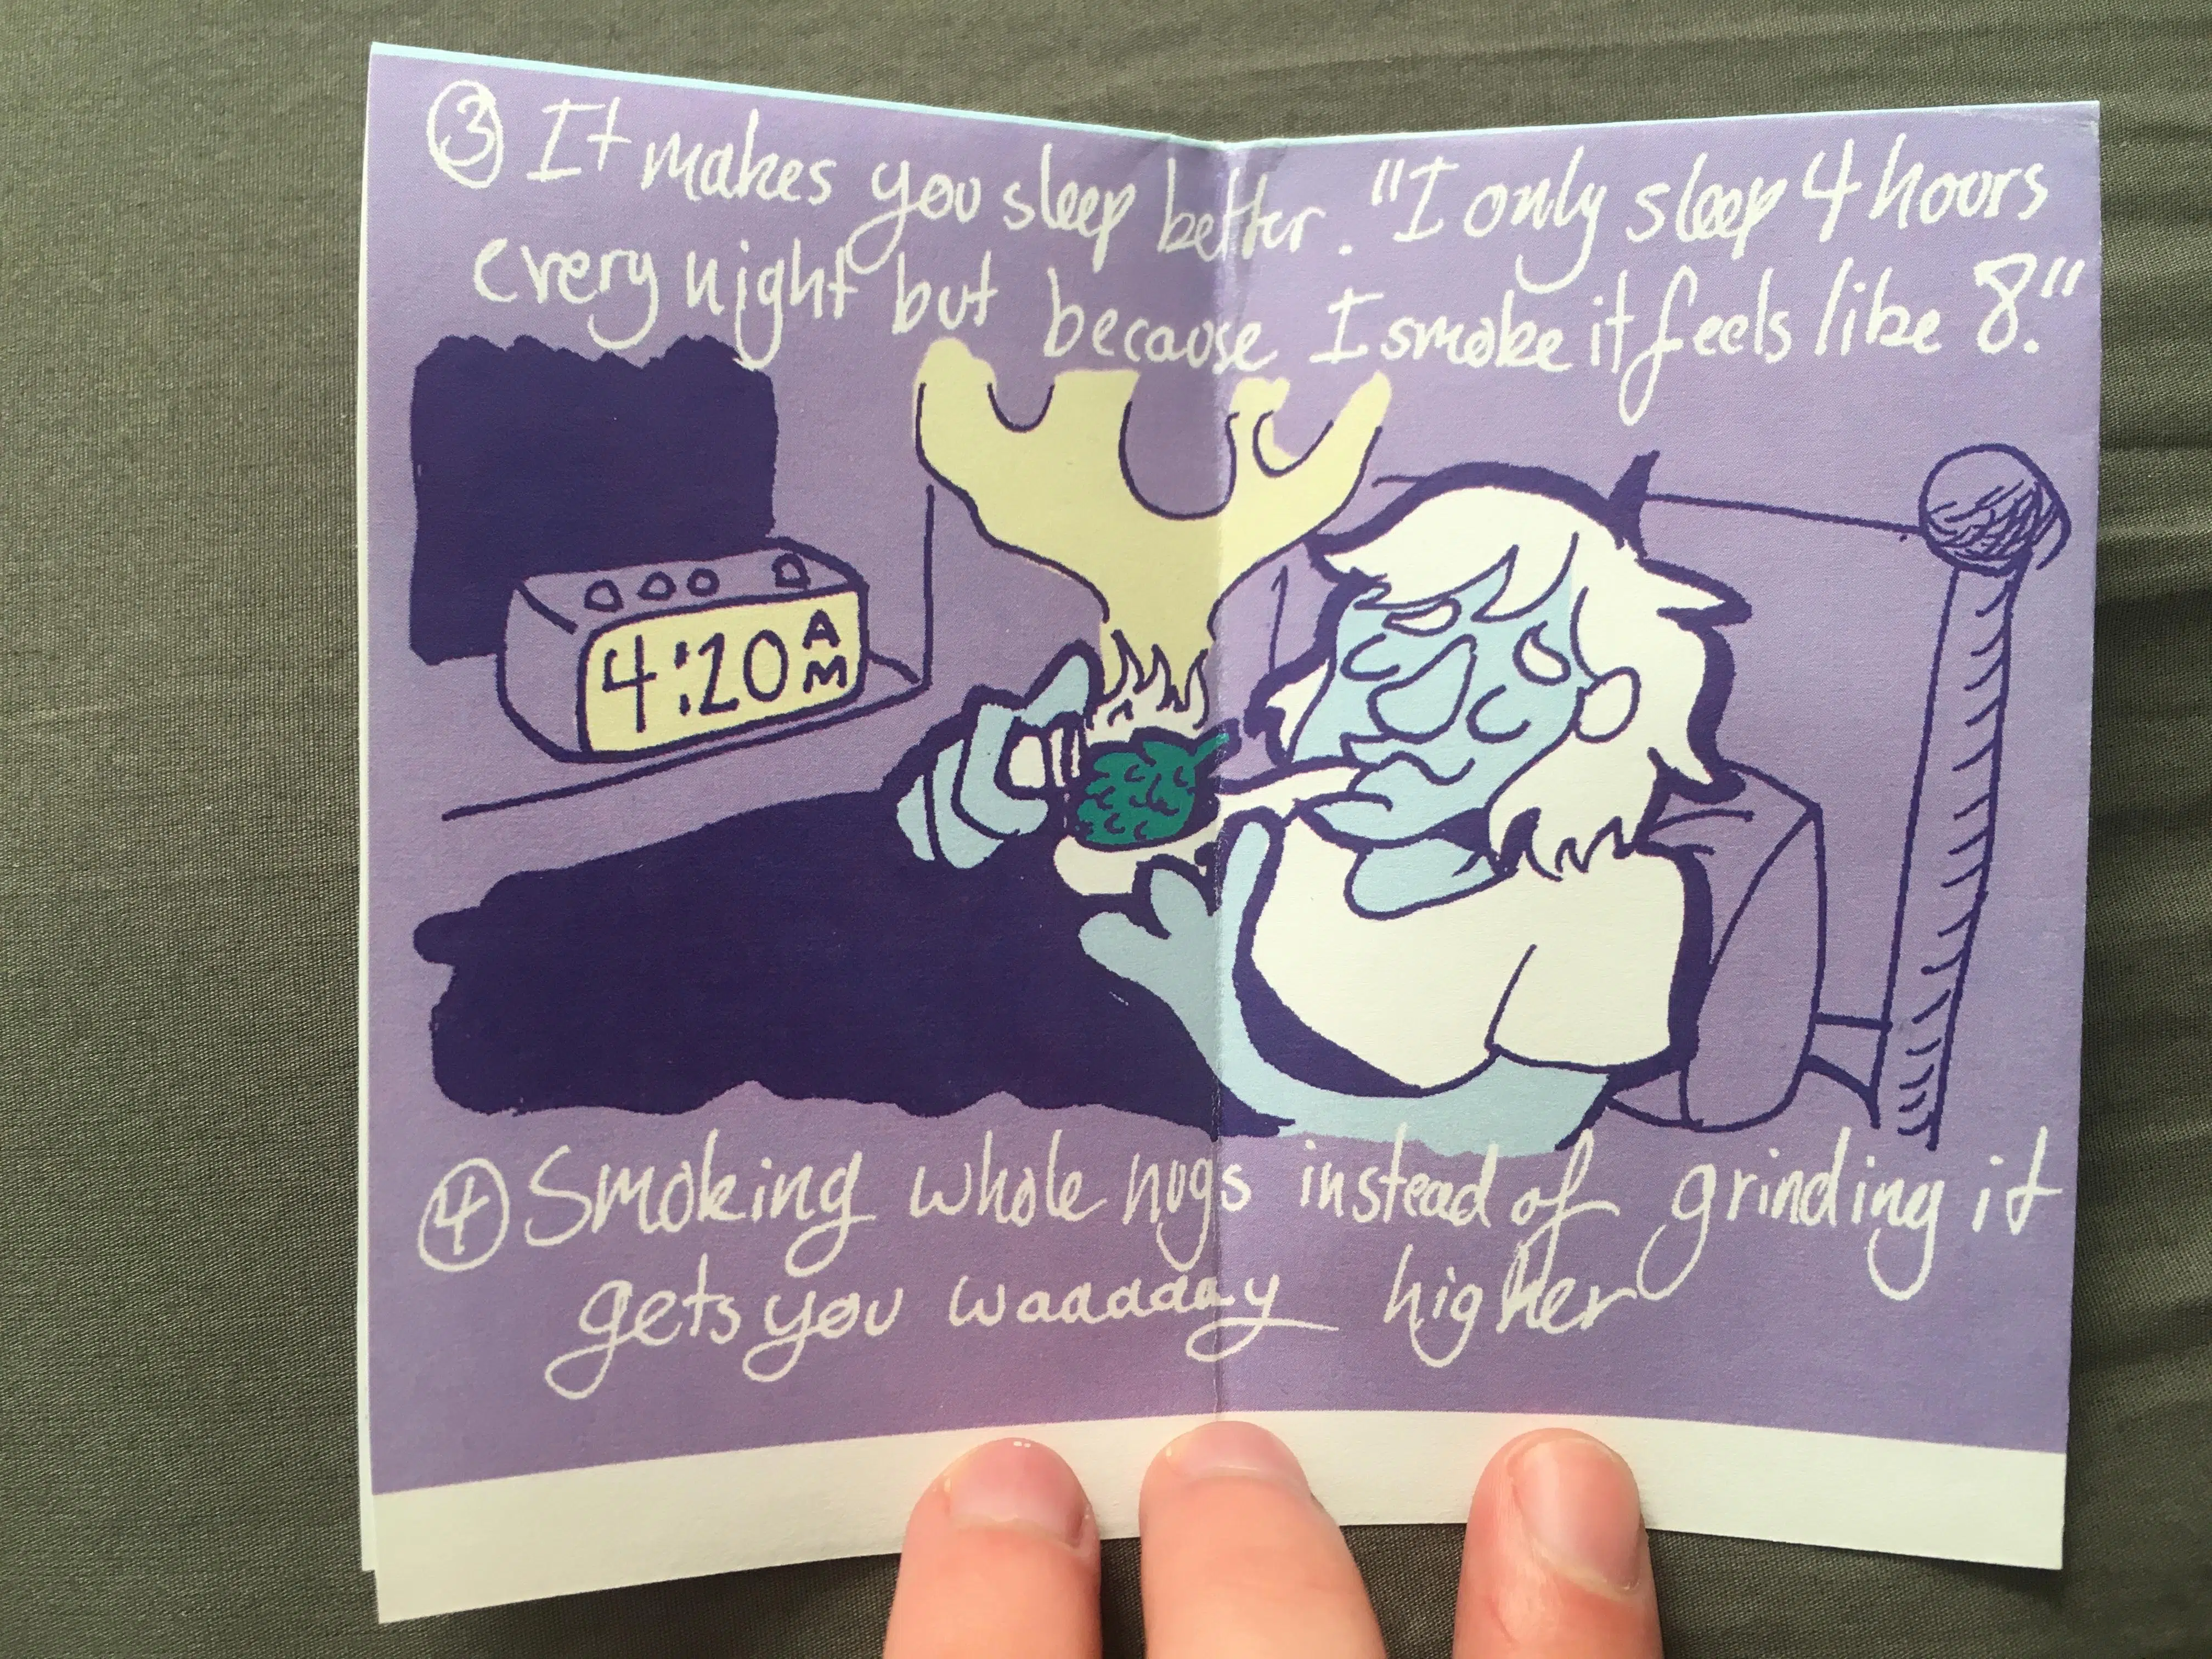 ③ It makes you sleep better. "I only sleep 4 hours
every night but because I smoke it feels like 8."
4:20 AM
④ Smoking whole nugs instead of grinding it
gets you waaaaay higher